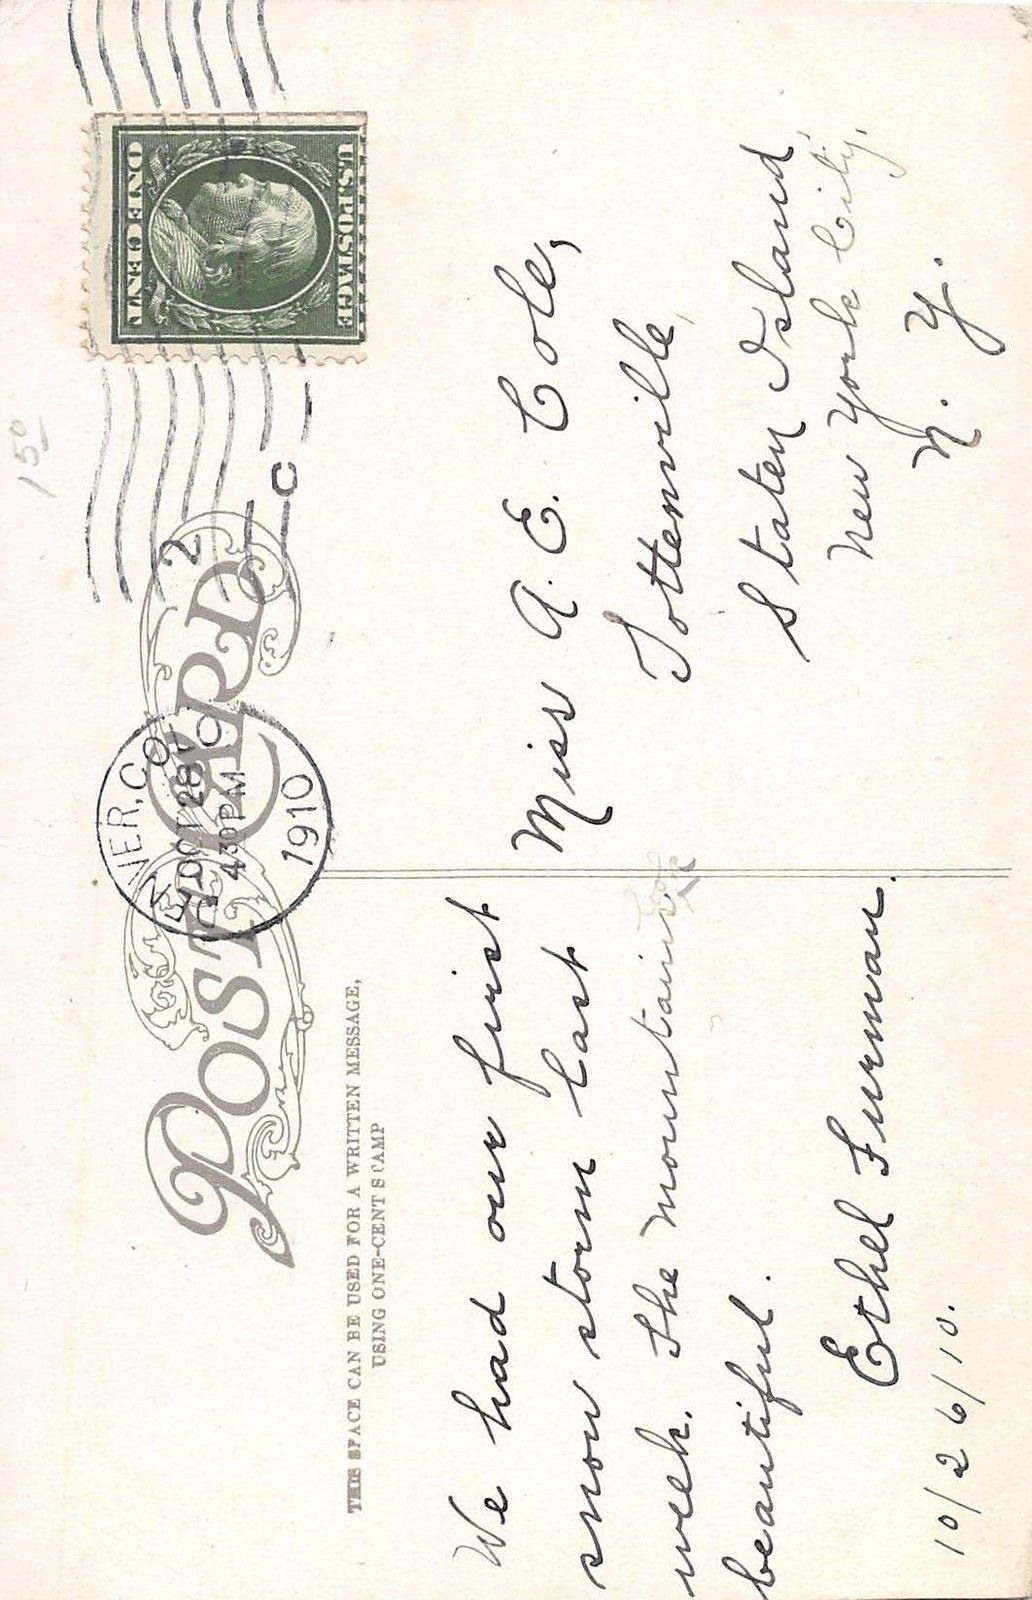 15⁰
POST CARD
DENVER, COLO
OCT 28
430 PM
1910
2
C
U.S. POSTAGE
ONE CENT
THIS SPACE CAN BE USED FOR A WRITTEN MESSAGE,
USING ONE-CENT STAMP
We had our first
snow storm last
week. The mountains look
beautiful.
Ethel Furman.
10/26/10.
Miss A. E. Cole,
Tottenville,
Staten Island,
New York City,
N. Y.